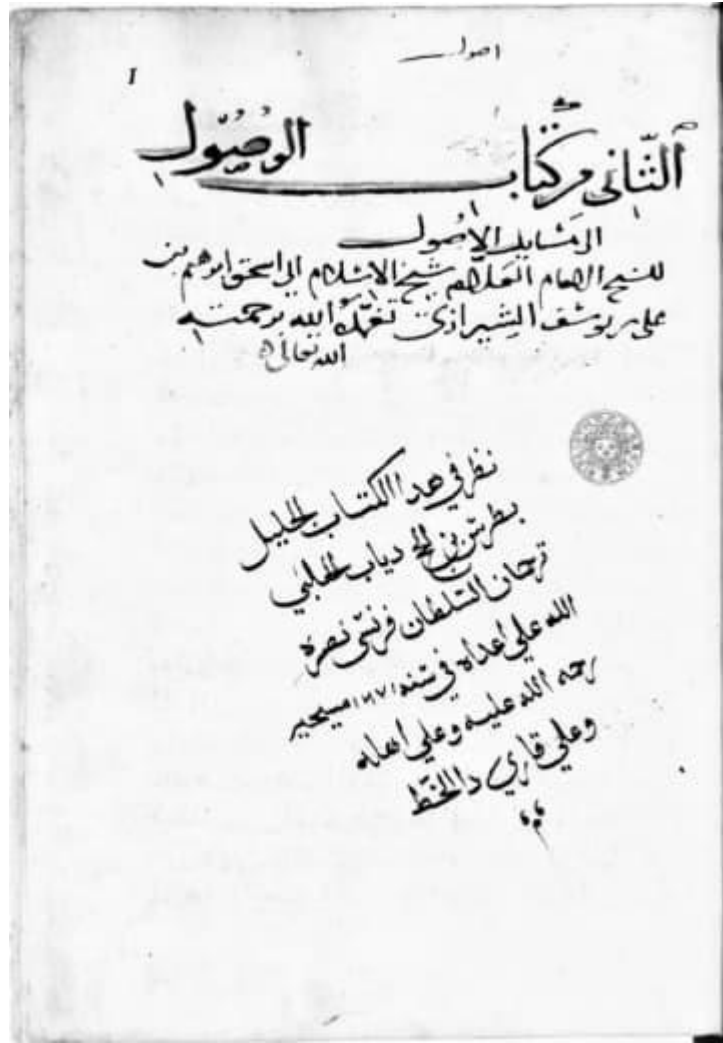 اصول
1
الثاني من كتاب الوصول
الى مسايل الاصول
للشيخ الامام العلامه شيخ الاسلام ابى اسحق ابرهيم بن
على بن يوسف الشيرازي تغمده الله برحمته
الله تعالى
نظر في هدا الكتاب الجليل
بطرس بن دياب الحلبي
ترجمان السلطان فرنسى نصره
الله علي اعداه في سنه مسيحيه
رحمه الله عليه وعلي اهله
وعلي قاري دالخط